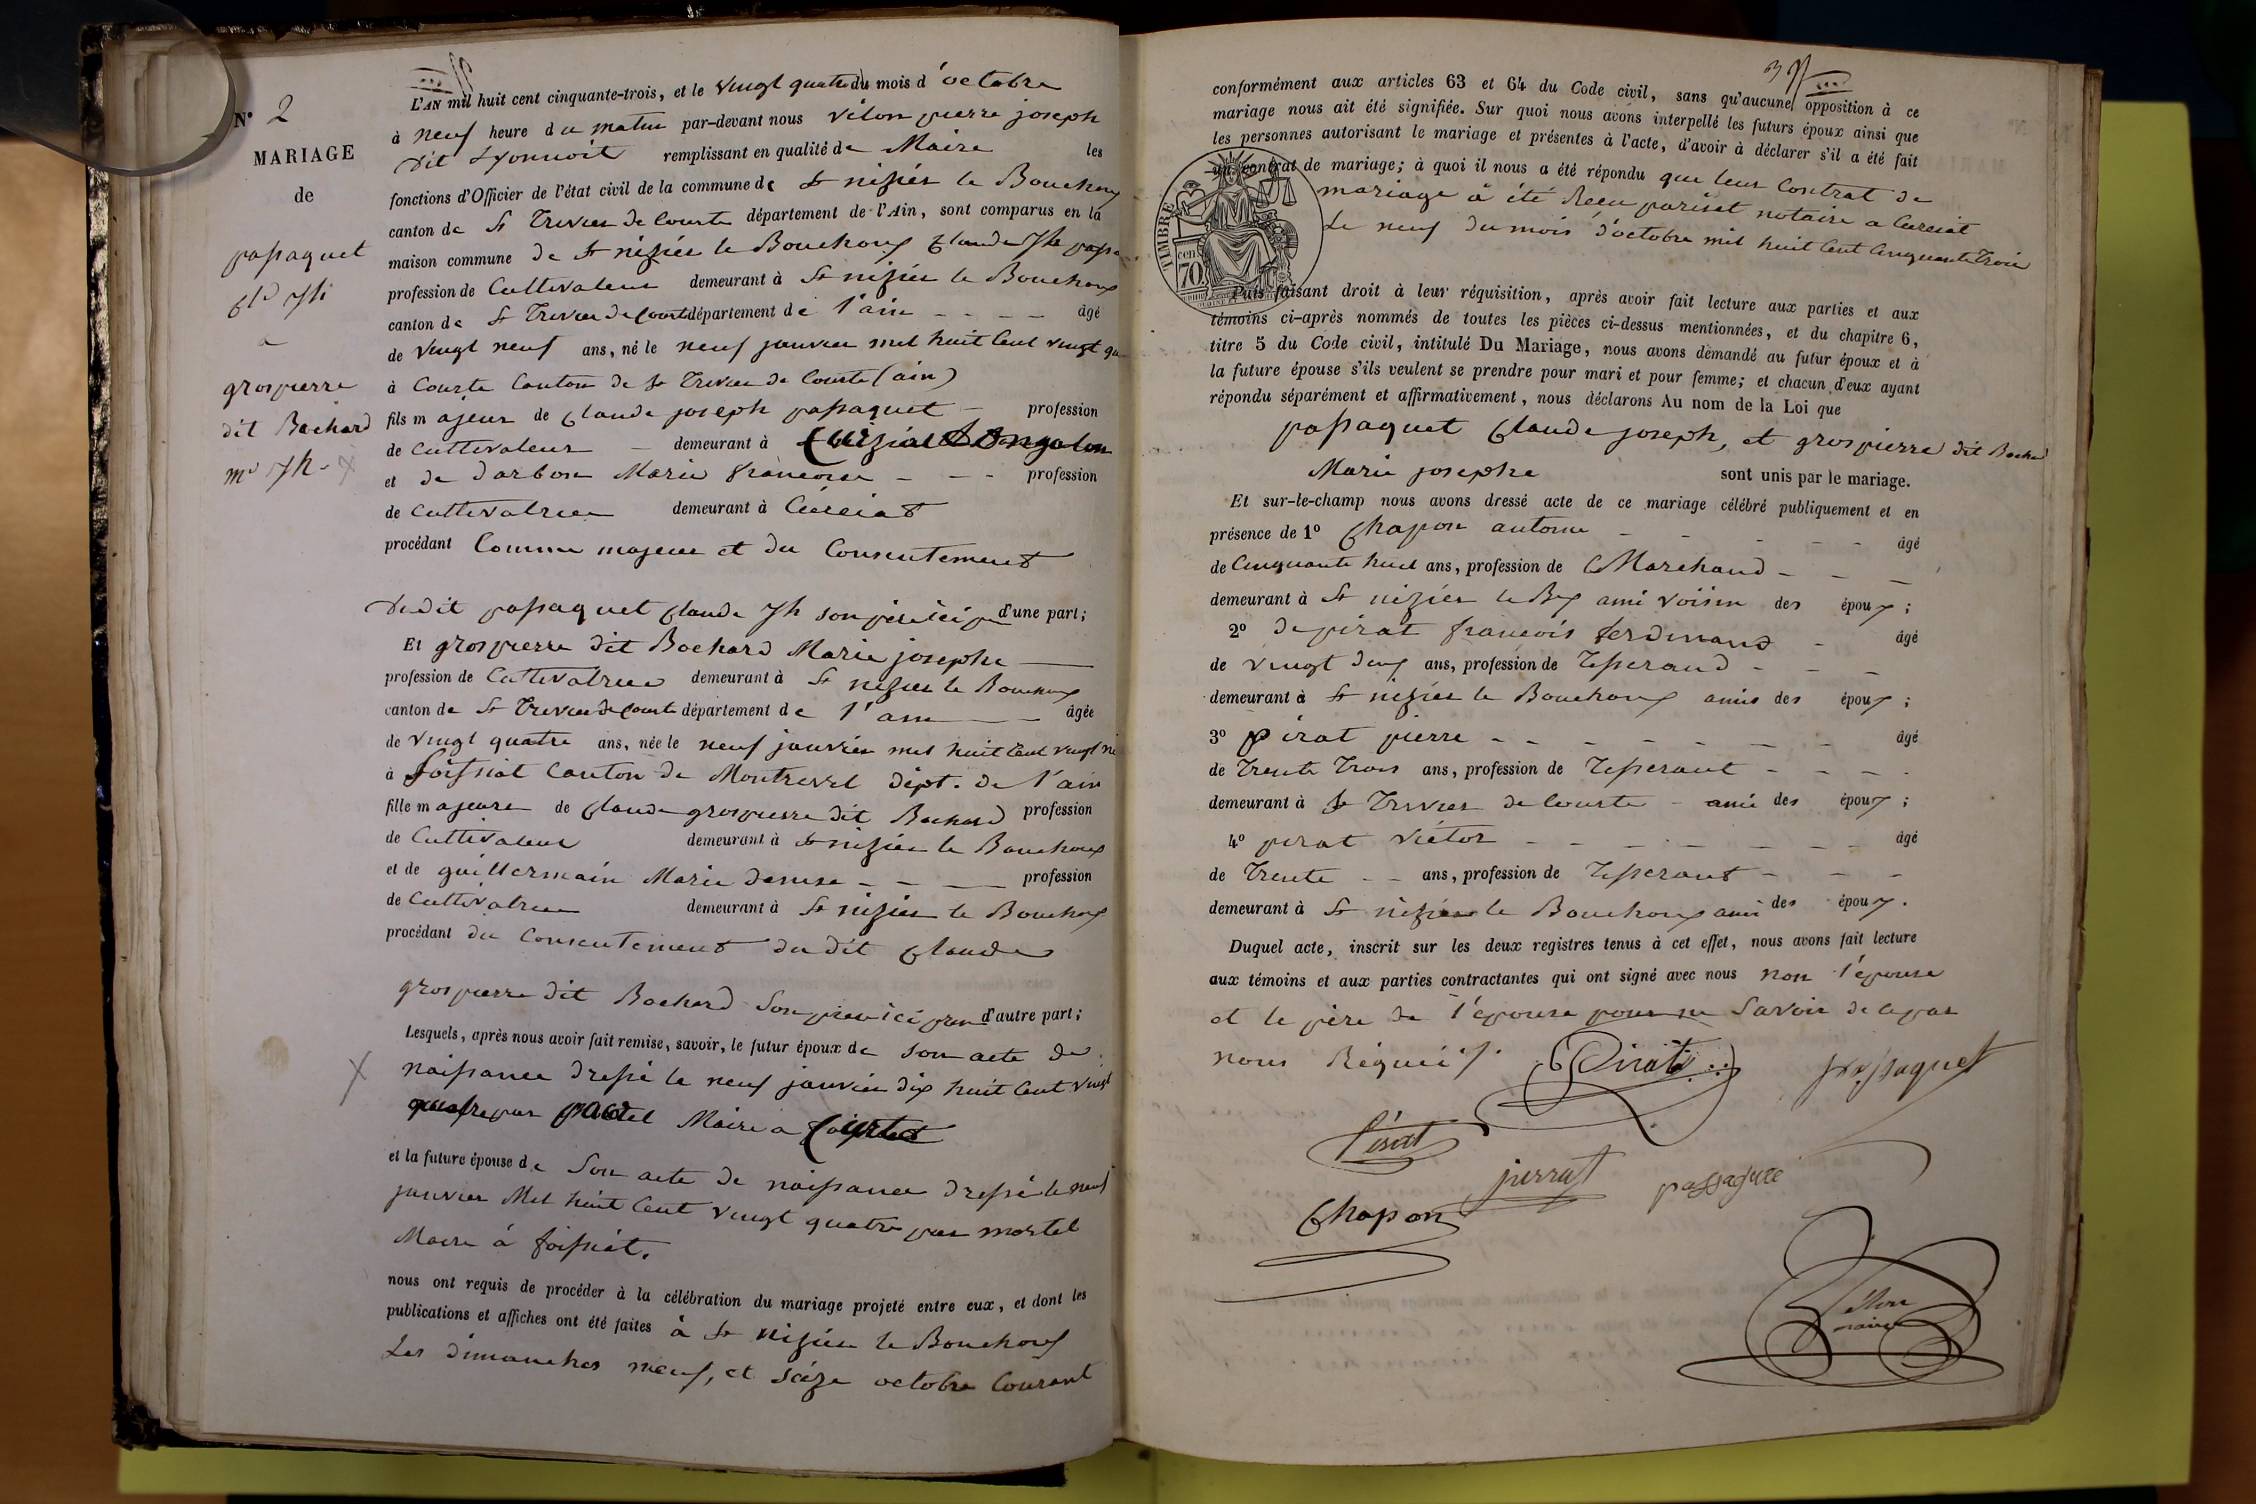 N° 2
MARIAGE
de
passaquet
Cld Jh
a
grospierre
dit Bochard
Me Jh
L'AN mil huit cent cinquante-trois, et le vingt quatre du mois d'octobre
à neuf heure du matin par-devant nous vélon pierre joseph
dit Lyonnoit remplissant en qualité de Maire les
fonctions d'Officier de l'état civil de la commune de St nizier le Bouchoux
canton de St Trivier de Courte département de l'Ain, sont comparus en la
maison commune de St nizier le Bouchoux Claude Jh
profession de Cultivateur demeurant à St nizier le Bouchoux
canton de St Trivier de Courte département de l'ain âgé
de vingt neuf ans, né le neuf janvier mil huit Cent vingt
à Courte Canton de St Trivier de Courte (ain)
fils majeur de Claude joseph passaquet profession
de cultivateur demeurant à
et de darbon Marie françoise profession
de cultivatrice demeurant à Curciat
procédant Comme majeur et du Consentement
du dit passaquet Claude Jh son père ici d'une part;
Et grospierre dit Bochard Marie josephe
profession de Cultivatrice demeurant à St nizier le Bouchoux
canton de St Trivier de Courte département de l'ain âgée
de vingt quatre ans, née le neuf janvier mil huit Cent vingt
à foissiat Canton de Montrevel dépt. de l'ain
fille majeure de Claude grospierre dit Bochard profession
de Cultivateur demeurant à St nizier le Bouchoux
et de guillermain Marie denise profession
de Cultivatrice demeurant à St nizier le Bouchoux
procédant du Consentement du dit Claude
grospierre dit Bochard Son père ici d'autre part;
Lesquels, après nous avoir fait remise, savoir, le futur époux de son acte de
naissance dressé le neuf janvier dix huit Cent vingt
quatre par Maire a
et la future épouse de Son acte de naissance dressé le neuf
janvier Mil huit Cent vingt quatre par mortel
Maire à foissiat.
nous ont requis de procéder à la célébration du mariage projeté entre eux, et dont les
publications et affiches ont été faites à St nizier le Bouchoux
Les dimanches neuf, et seize octobre Courant
conformément aux articles 63 et 64 du Code civil, sans qu'aucune opposition à ce
mariage nous ait été signifiée. Sur quoi nous avons interpellé les futurs époux ainsi que
les personnes autorisant le mariage et présentes à l'acte, d'avoir à déclarer s'il a été fait
un contrat de mariage; à quoi il nous a été répondu que leur Contrat de
mariage à été Recu pariset notaire a Curciat
Le neuf du mois d'octobre mil huit Cent Cinquante Trois
TIMBRE
70
Puis faisant droit à leur réquisition, après avoir fait lecture aux parties et aux
témoins ci-après nommés de toutes les pièces ci-dessus mentionnées, et du chapitre 6,
titre 5 du Code civil, intitulé Du Mariage, nous avons demandé au futur époux et à
la future épouse s'ils veulent se prendre pour mari et pour femme; et chacun d'eux ayant
répondu séparément et affirmativement, nous déclarons Au nom de la Loi que
passaquet Claude joseph, et grospierre dit Bochard
Marie josephe sont unis par le mariage.
Et sur-le-champ nous avons dressé acte de ce mariage célébré publiquement et en
présence de 1° Chapon antoine âgé
de Cinquante huit ans, profession de Marchand
demeurant à St nizier le Bx ami voisin des époux;
2° depirat françois ferdinand âgé
de vingt deux ans, profession de Tisserand
demeurant à St nizier le Bouchoux amis des époux;
3° Pirat pierre âgé
de Trente Trois ans, profession de Tisserant
demeurant à St Trivier de Courte ami des époux;
4° pirat victor âgé
de Trente ans, profession de Tisserant
demeurant à St nizier le Bouchoux ami des époux.
Duquel acte, inscrit sur les deux registres tenus à cet effet, nous avons fait lecture
aux témoins et aux parties contractantes qui ont signé avec nous non l'épouse
et le père de l'épouse pour ne Savoir de ce par
nous Réquis.
Pirat
passaquet
Pirat
pirrat
passaquet
Chapon
vélon
maire